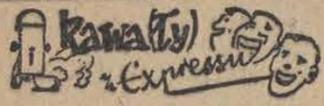 Kawa(Ty)
z Expressu